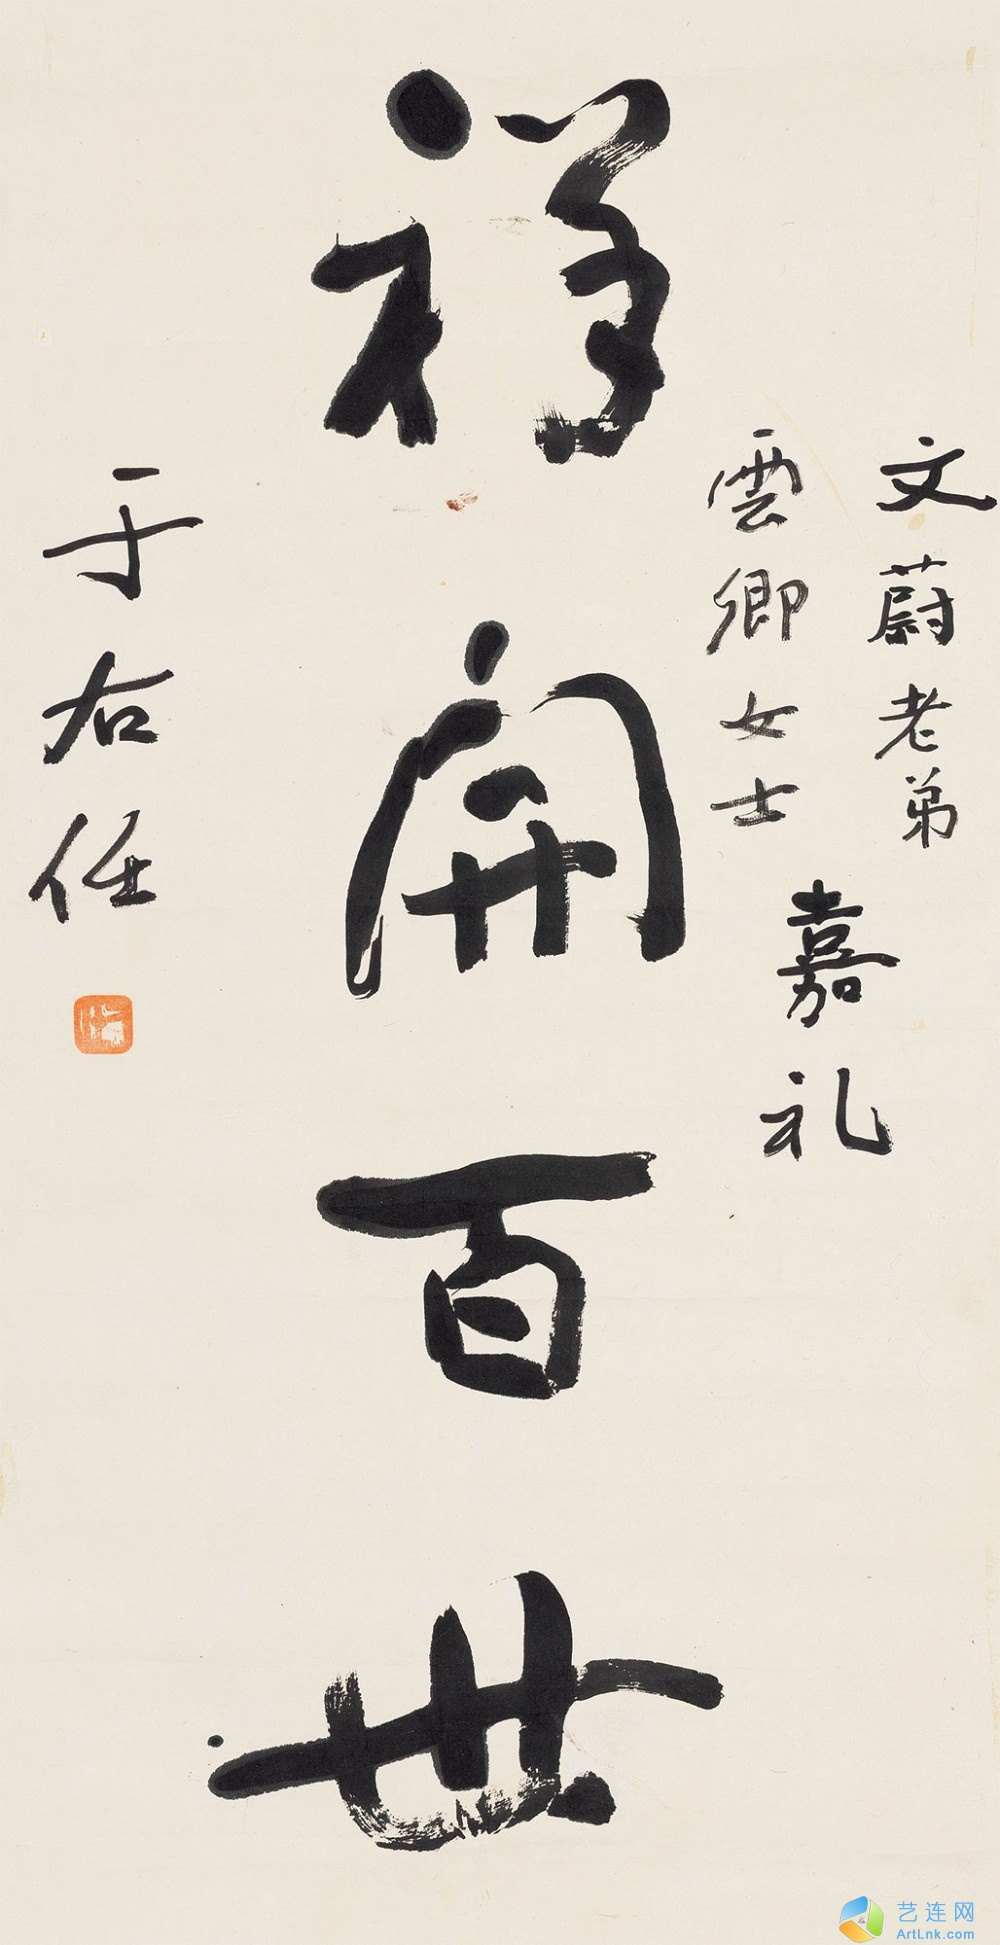 文蔚老弟
雲卿女士
嘉礼
祥開百世
于右任
艺连网
ArtLnk.com